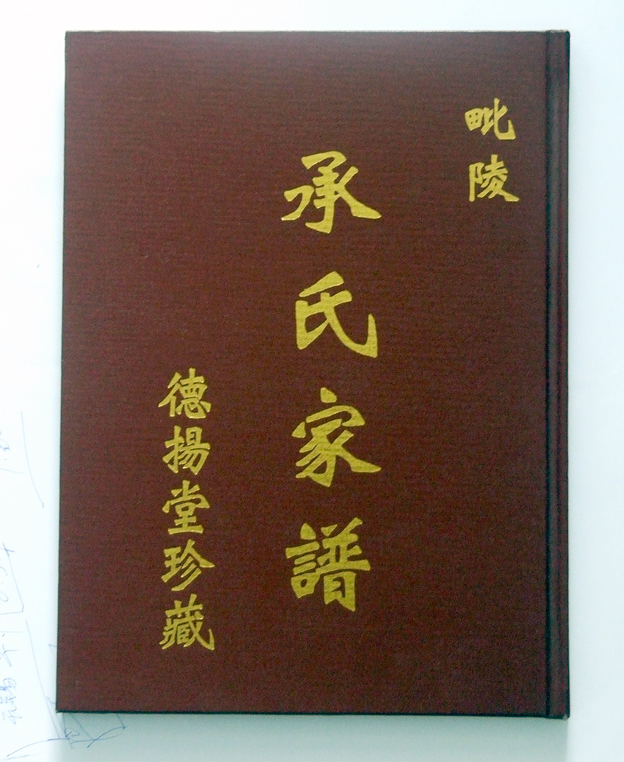 毗陵
承氏家譜
德揚堂珍藏